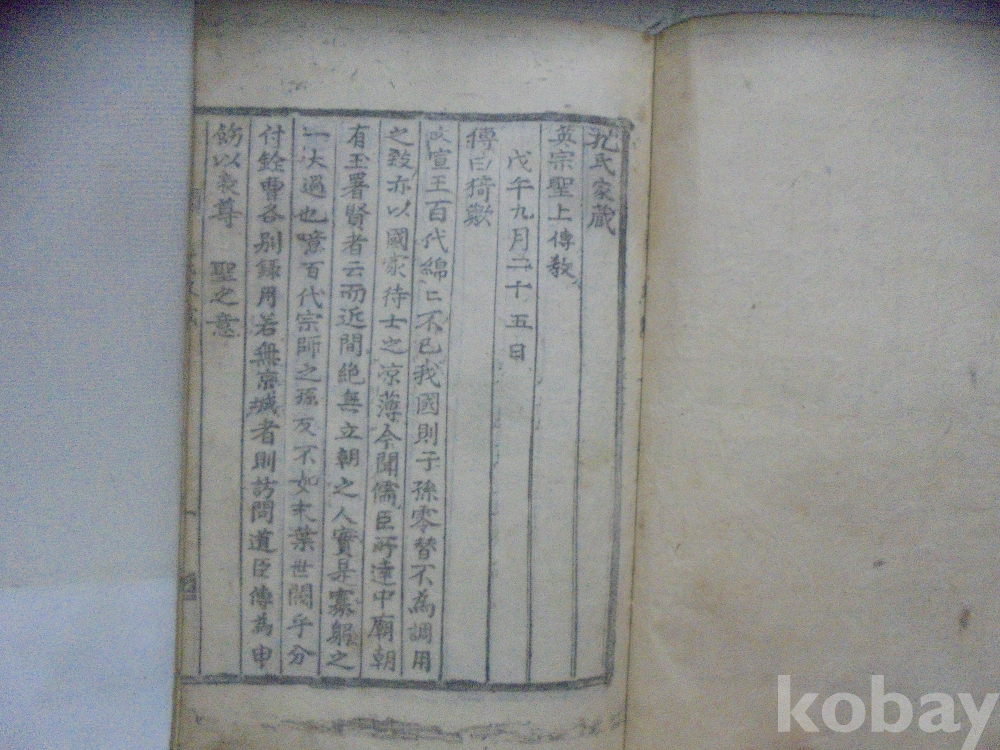 孔氏家藏
英宗聖上傳敎
戊午九月二十五日
傳曰猗歟
文宣王百代綿〻不已我國則子孫零替不為調用
之致亦以國家待士之凉薄今聞儒臣所達中廟朝
有玉署賢者云而近間絶無立朝之人實是寡躬之
一大過也噫百代宗師之孫反不如末葉世閥乎分
付銓曹各別錄用若無京城者則訪問道臣傳為申
飭以表尊 聖之意
kobay